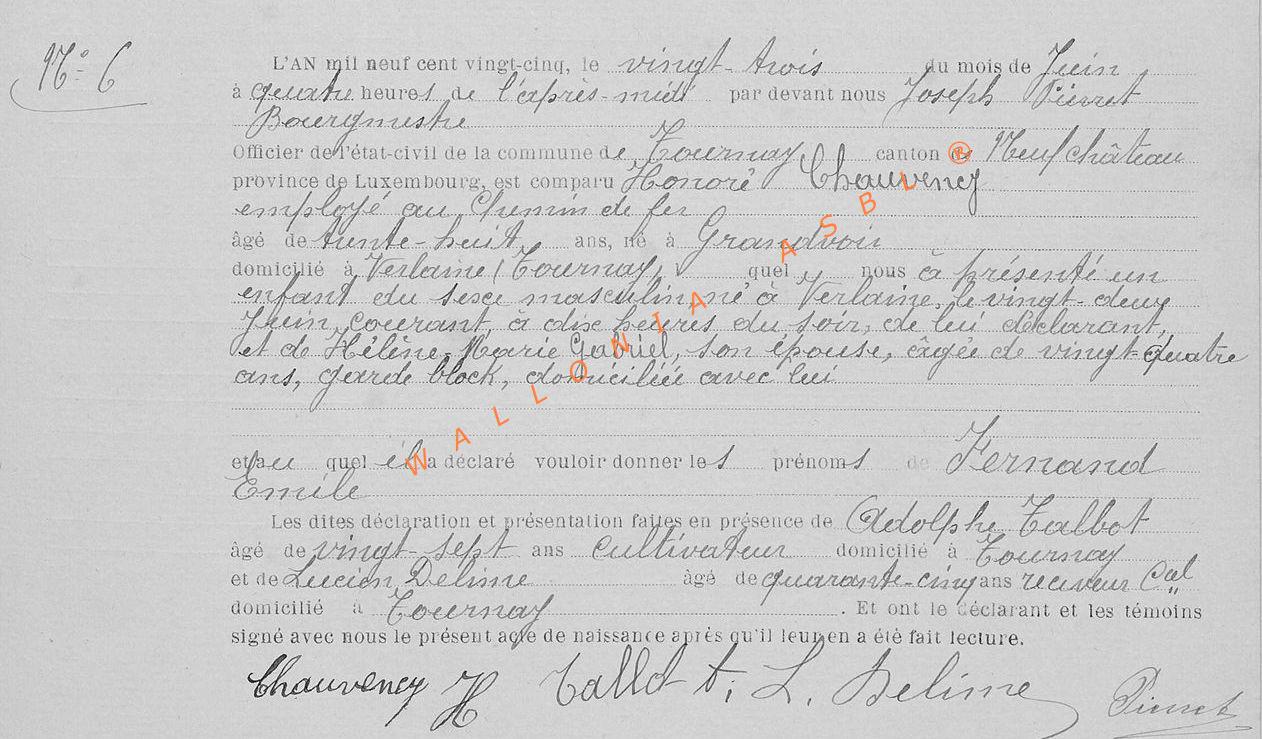 N° 6
L'AN mil neuf cent vingt-cinq, le vingt-trois du mois de Juin
à quatre heures de l'après-midi par devant nous Joseph Pierret
Bourgmestre
Officier de l'état-civil de la commune de Tournay canton de Neufchâteau
province de Luxembourg, est comparu Honoré Chauvency
employé au Chemin de fer
âgé de trente-huit ans, né à Grandvoir
domicilié à Verlaine (Tournay) quel nous à présenté un
enfant du sexe masculin, né à Verlaine, le vingt-deux
Juin courant, à dix heures du soir, de lui déclarant,
et de Hélène Marie Gabriel, son épouse, âgée de vingt-quatre
ans, garde block, domiciliée avec lui
et au quel il a déclaré vouloir donner les prénoms de Fernand
Emile
Les dites déclaration et présentation faites en présence de Adolphe Talbot
âgé de vingt-sept ans cultivateur domicilié à Tournay
et de Lucien Delime âgé de quarante-cinq ans receveur Cal
domicilié à Tournay. Et ont le déclarant et les témoins
signé avec nous le présent acte de naissance après qu'il leur en a été fait lecture.
Chauvency H Talbot A. L. Delime Pierret
WALLONIA ASBL ®